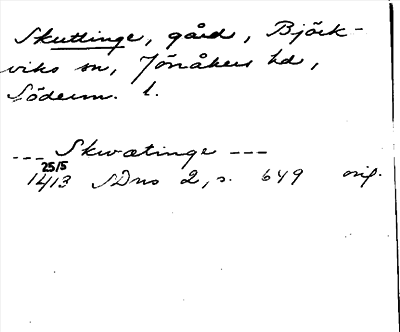 Skuttinge, gård, Björk-
viks sn, Jönåkers hd,
Söderm. l.
--- Skwætinge ---
25/5
1413 SDns 2, s. 649 orig.